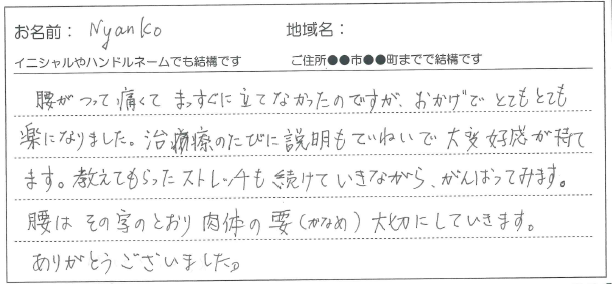 お名前： Nyanko 地域名：
イニシャルやハンドルネームでも結構です ご住所●●市●●町までで結構です
腰がつって痛くて まっすぐに立てなかったのですが、おかげでとてもとても
楽になりました。治療のたびに説明もていねいで大変好感が持て
ます。教えてもらったストレッチも続けていきながら、がんばってみます。
腰は その字のとおり 肉体の要（かなめ）大切にしていきます。
ありがとうございました。